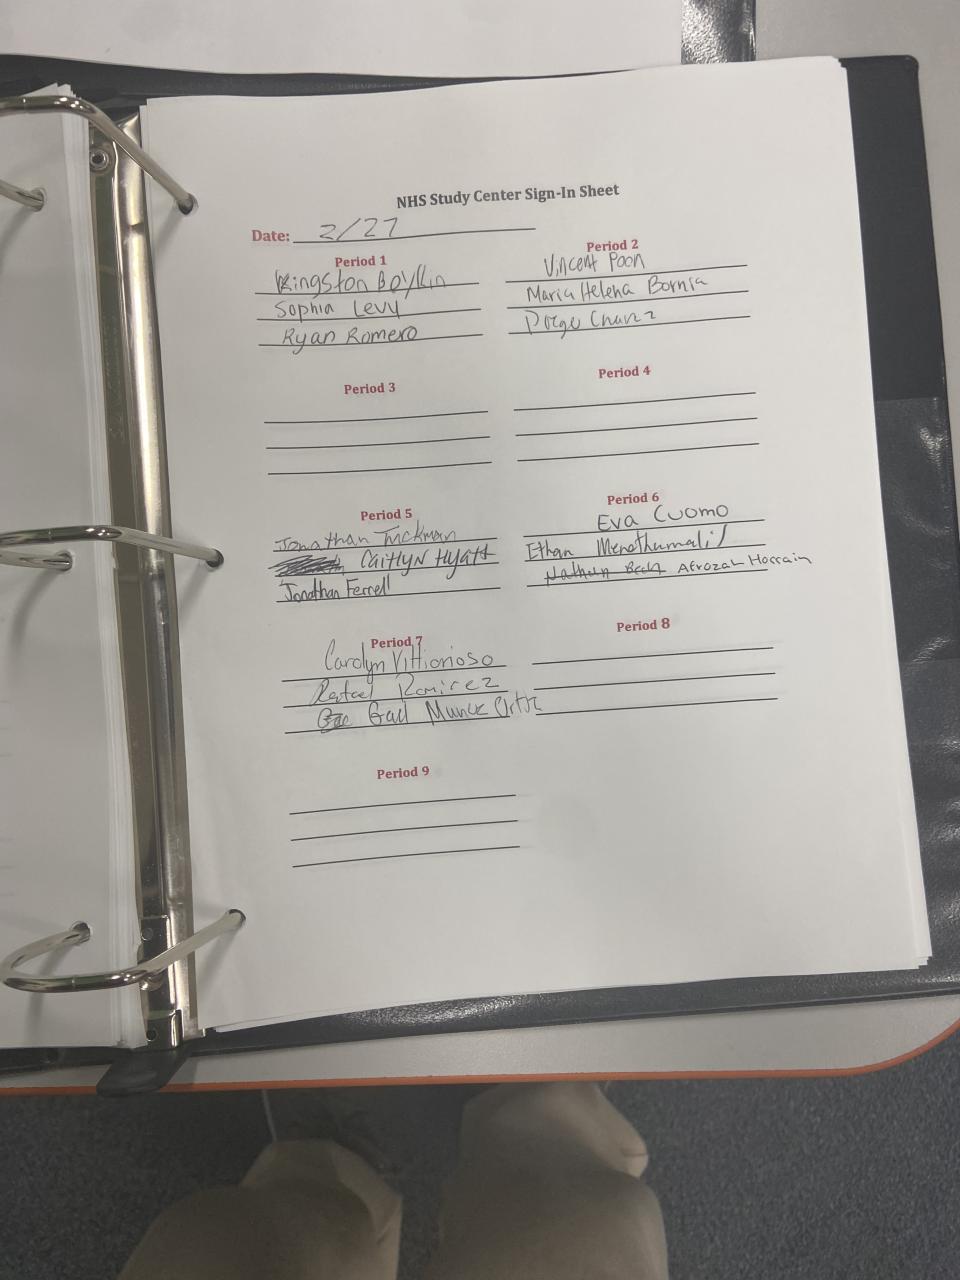 NHS Study Center Sign-In Sheet
Date: 2/27
Period 1
Kingston Boyllin
Sophia Levy
Ryan Romero
Period 2
Vincent Poon
Maria Helena Bornia
Period 3
Period 4
Period 5
Jonathan Tuckman
Caitlyn Hyatt
Jonathan Ferrell
Period 6
Eva Cuomo
Ethan Menothumalil
Nathan Beck Afrozah Hossain
Period 7
Carolyn Vittorioso
Rafael Ramirez
Gael Munoz Ortiz
Period 8
Period 9